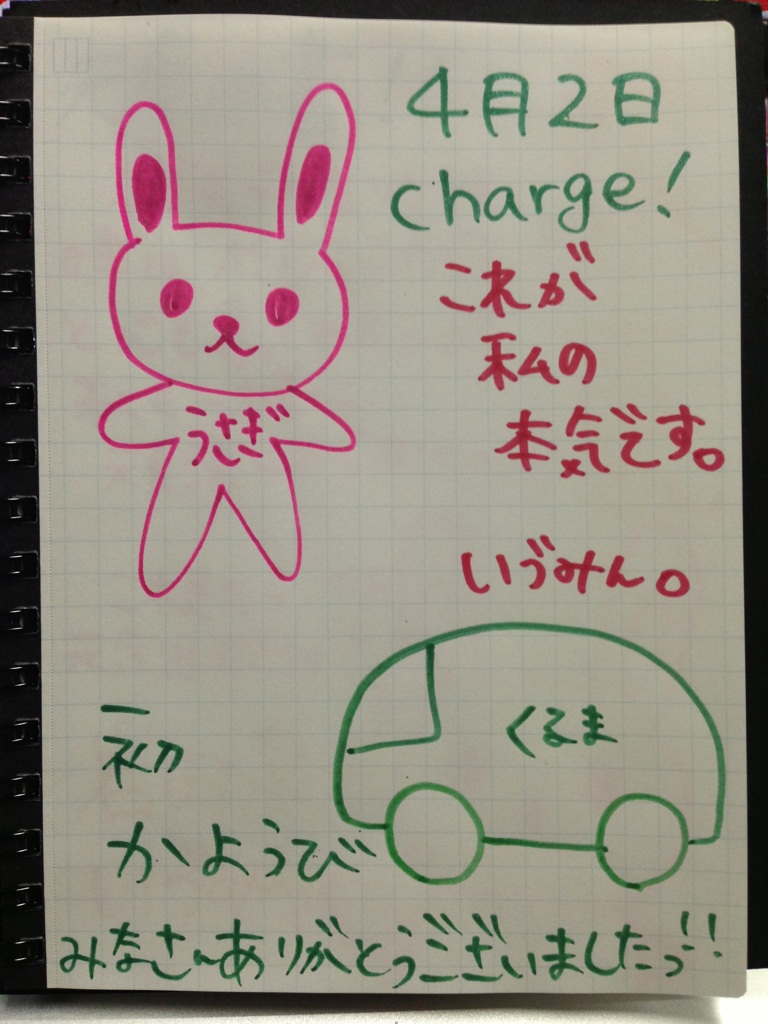 4月2日
charge!
これが
私の
本気です。
うさぎ
いづみん。
くるま
一
初
かようび
みなさんありがとうございましたっ!!